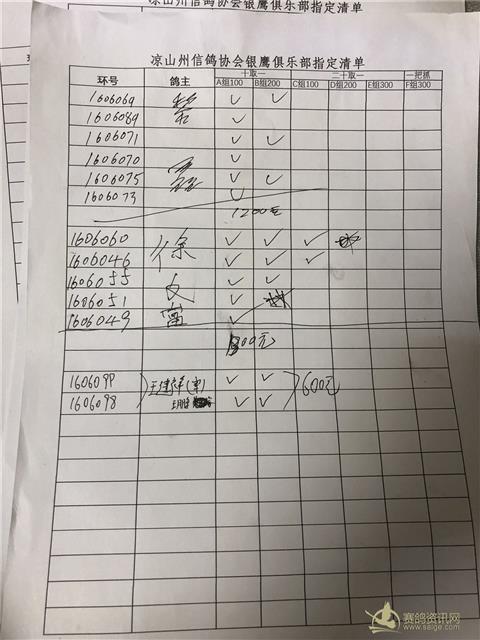 凉山州信鸽协会银鹰俱乐部指定清单
凉山州信鸽协会银鹰俱乐部指定清单
环号 鸽主 十取一 二十取一 一把抓
A组100 B组200 C组100 D组200 E组300 F组300
1606069 ✓ ✓
1606089 ✓
1606071 ✓ ✓
1606070 ✓
1606075 ✓ ✓
1606073 ✓
1200元
1606060 徐 ✓ ✓ ✓
1606046 ✓ ✓ ✓
1606055 文 ✓ ✓
1606051 富 ✓
1606049 ✓
00元
1606099 ✓ ✓ 600元
1606098 ✓ ✓
赛鸽资讯网
www.saige.com